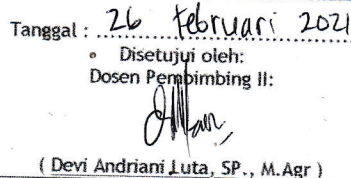 Tanggal : 26 februari 2021
Disetujui oleh:
Dosen Pembimbing II:
( Devi Andriani Luta, SP., M.Agr )